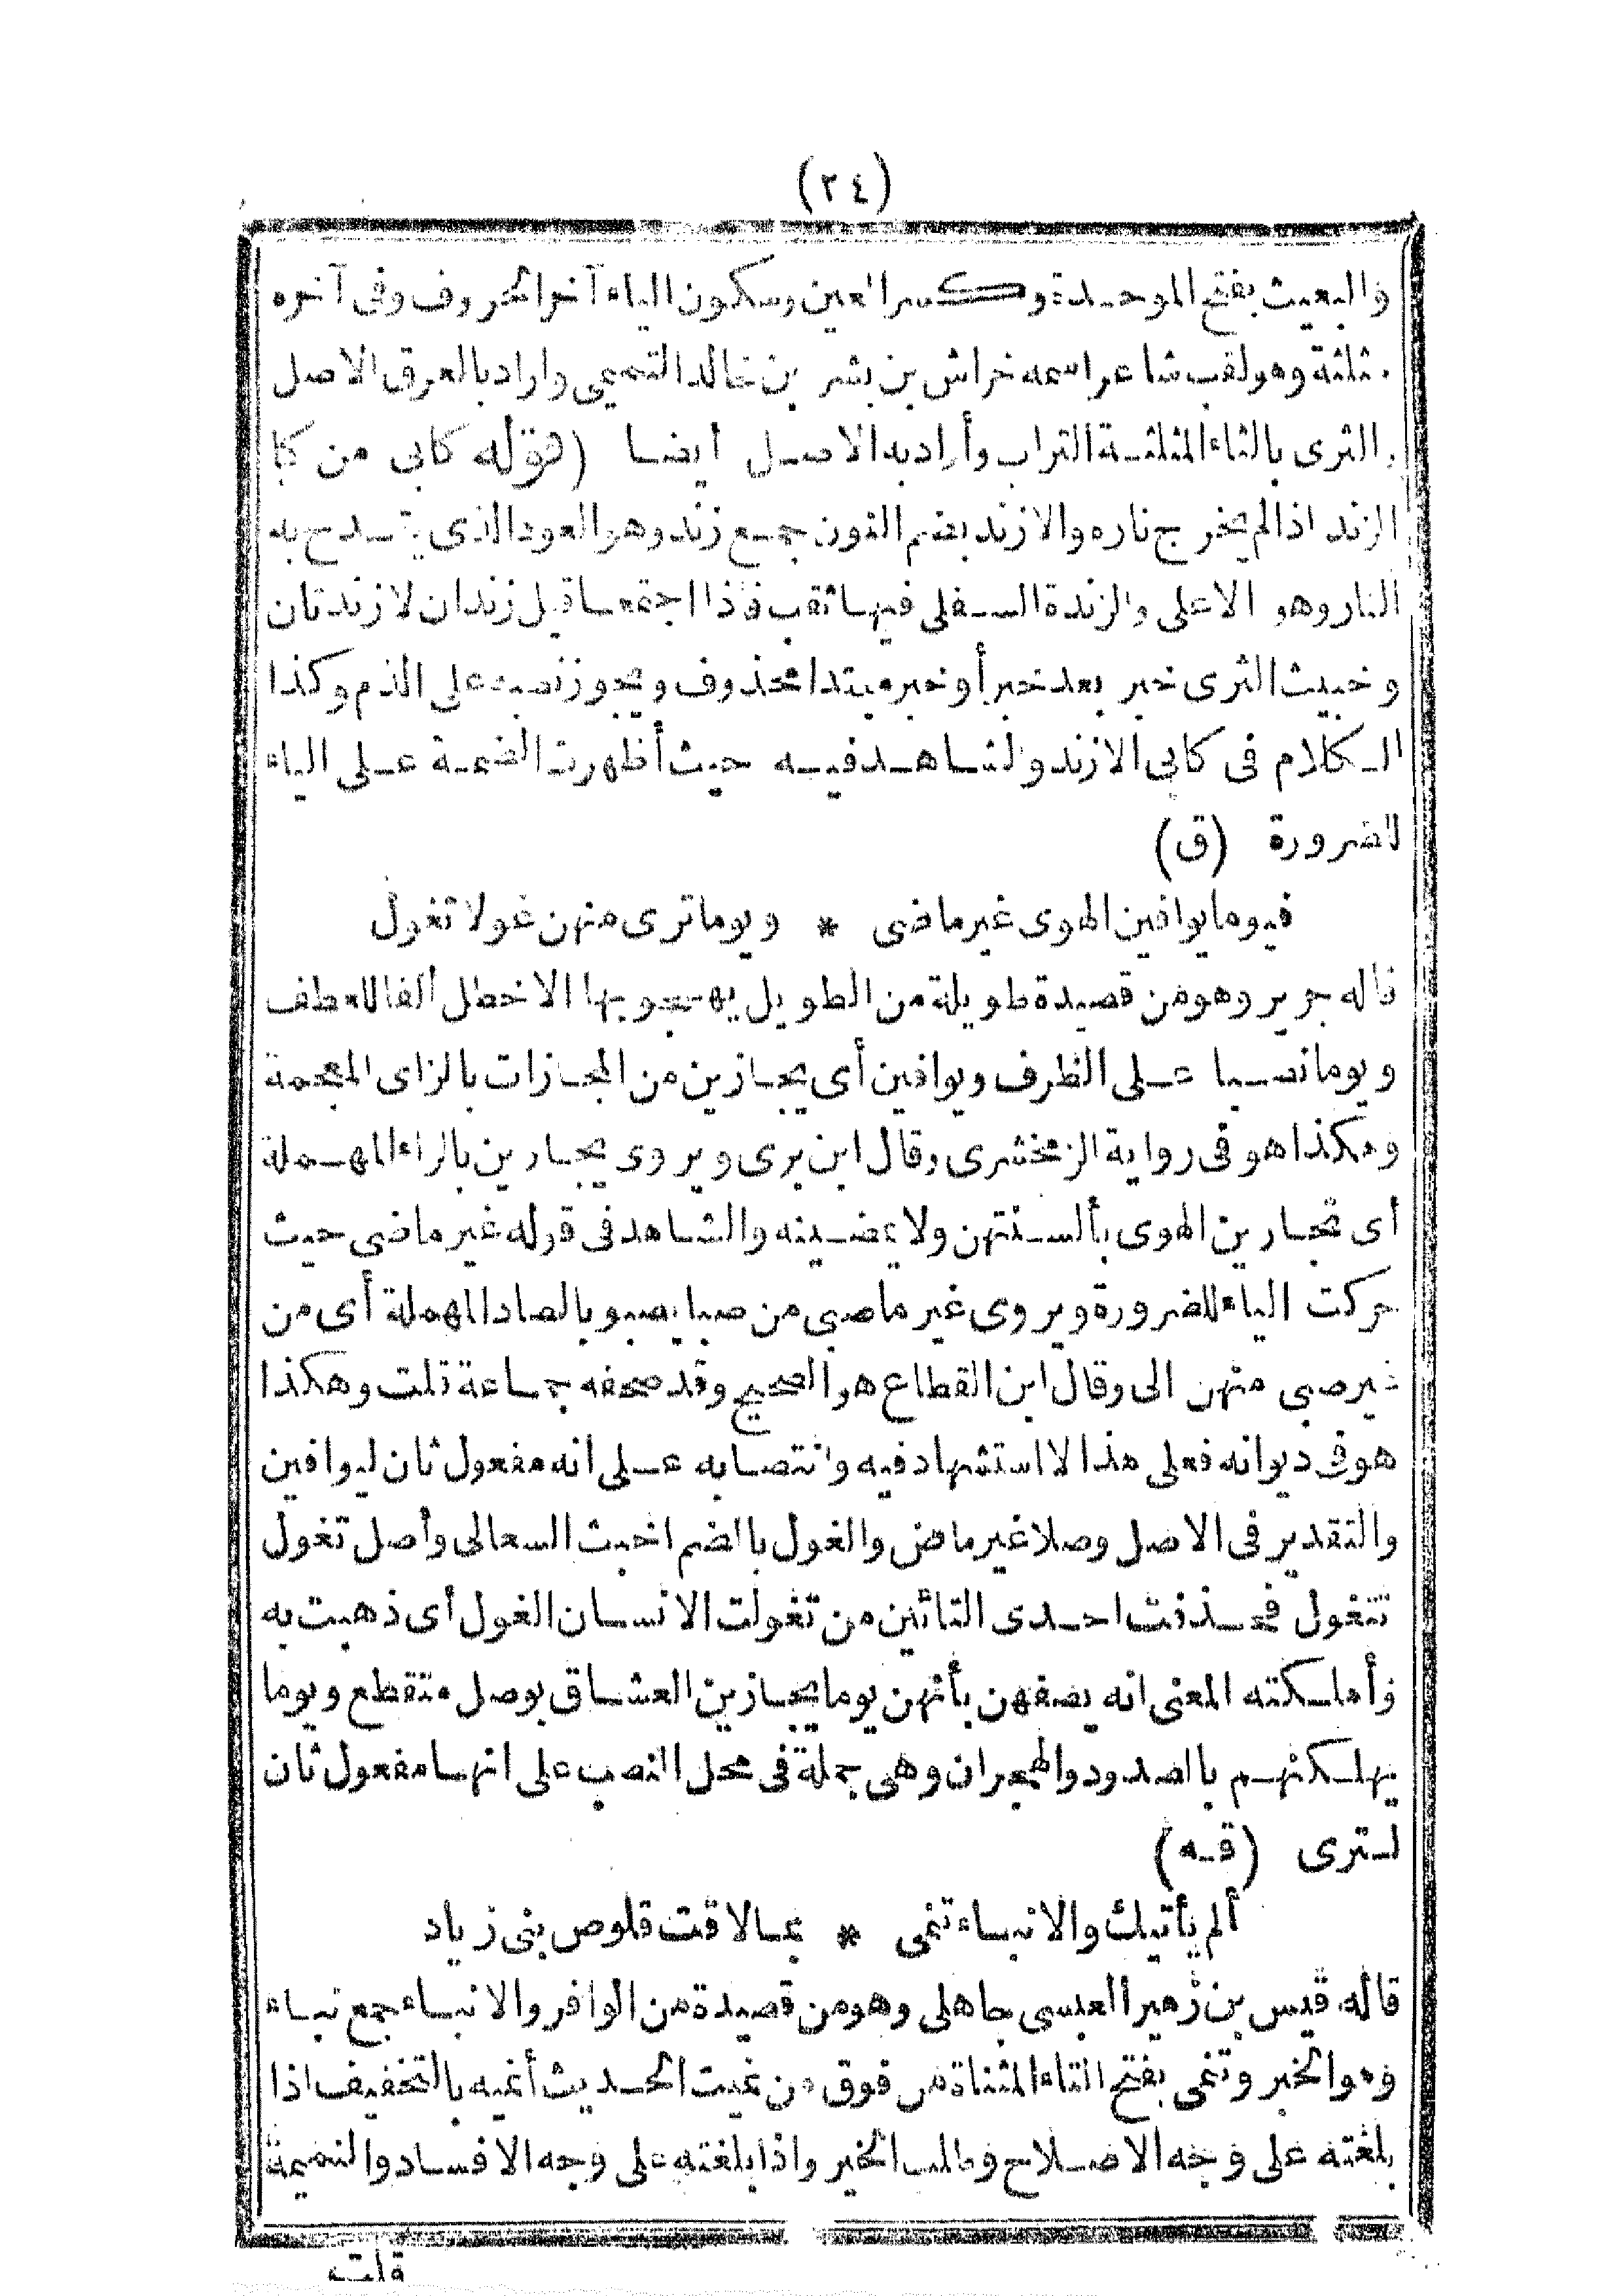 (٢٤)
والبعيث بفتح الموحدة وكسر العين وسكون الياء آخر الحروف وفى آخره
مثلثة وهو لقب شاعر اسمه خراش بن بشر بن خالد التميمى واراد بالعرق الاصل
والثرى بالثاء المثلثة التراب وأراد به الاصل أيضا (قوله كابى من كبا
الزند اذا لم يخرج ناره والازند بضم النون جمع زند وهو العود الذى يقدح به
النار وهو الاعلى والزندة السفلى فيها ثقب فاذا اجتمعا قيل زندان لا زندتان
وخبيث الثرى خبر بعد خبر أو خبر مبتدا محذوف ويجوز نصبه على الذم وكذا
الكلام فى كابى الازند والشاهد فيه حيث أظهرت الضمة على الياء
للضرورة (ق)
فيوما يوافين الهوى غير ماضى * ويوما ترى منهن غولا تغول
قاله جرير وهو من قصيدة طويلة من الطويل يهجو بها الاخطل الفا للعطف
ويوما نصبا على الظرف ويوافين أى يجازين من المجازات بالزاى المعجمة
وهكذا هو فى رواية الزمخشرى وقال ابن برى ويروى يجارين بالراء المهملة
أى تجارين الهوى بألسنتهن ولا يمضينه والشاهد فى قوله غير ماضى حيث
حركت الياء للضرورة ويروى غير ماصبى من صبا يصبو بالصاد المهملة أى من
غير صبى منهن الى وقال ابن القطاع هو الصحيح وقد صحفه جماعة قلت وهكذا
هو فى ديوانه فعلى هذا لا استشهاد فيه وانتصابه على انه مفعول ثان ليوافين
والتقدير فى الاصل وصلا غير ماض والغول بالضم اخبث السعالى وأصل تغول
تتغول فحذفت احدى التائين من تغولت الانسان الغول أى ذهبت به
وأهلكته المعنى انه يصفهن بأنهن يوما يجازين العشاق بوصل متقطع ويوما
يهلكنهم بالصدود والهجران وهى جملة فى محل النصب على انها مفعول ثان
لترى (قه)
ألم يأتيك والانباء تنمى * بما لاقت قلوص بنى زياد
قاله قيس بن زهير العبسى جاهلى وهو من قصيدة من الوافر والانباء جمع نباء
وهو الخبر وتنمى بفتح التاء المثناة من فوق من نميت الحديث أنميه بالتخفيف اذا
بلغته على وجه الاصلاح وطلب الخير واذا بلغته على وجه الافساد والنميمة
قلت